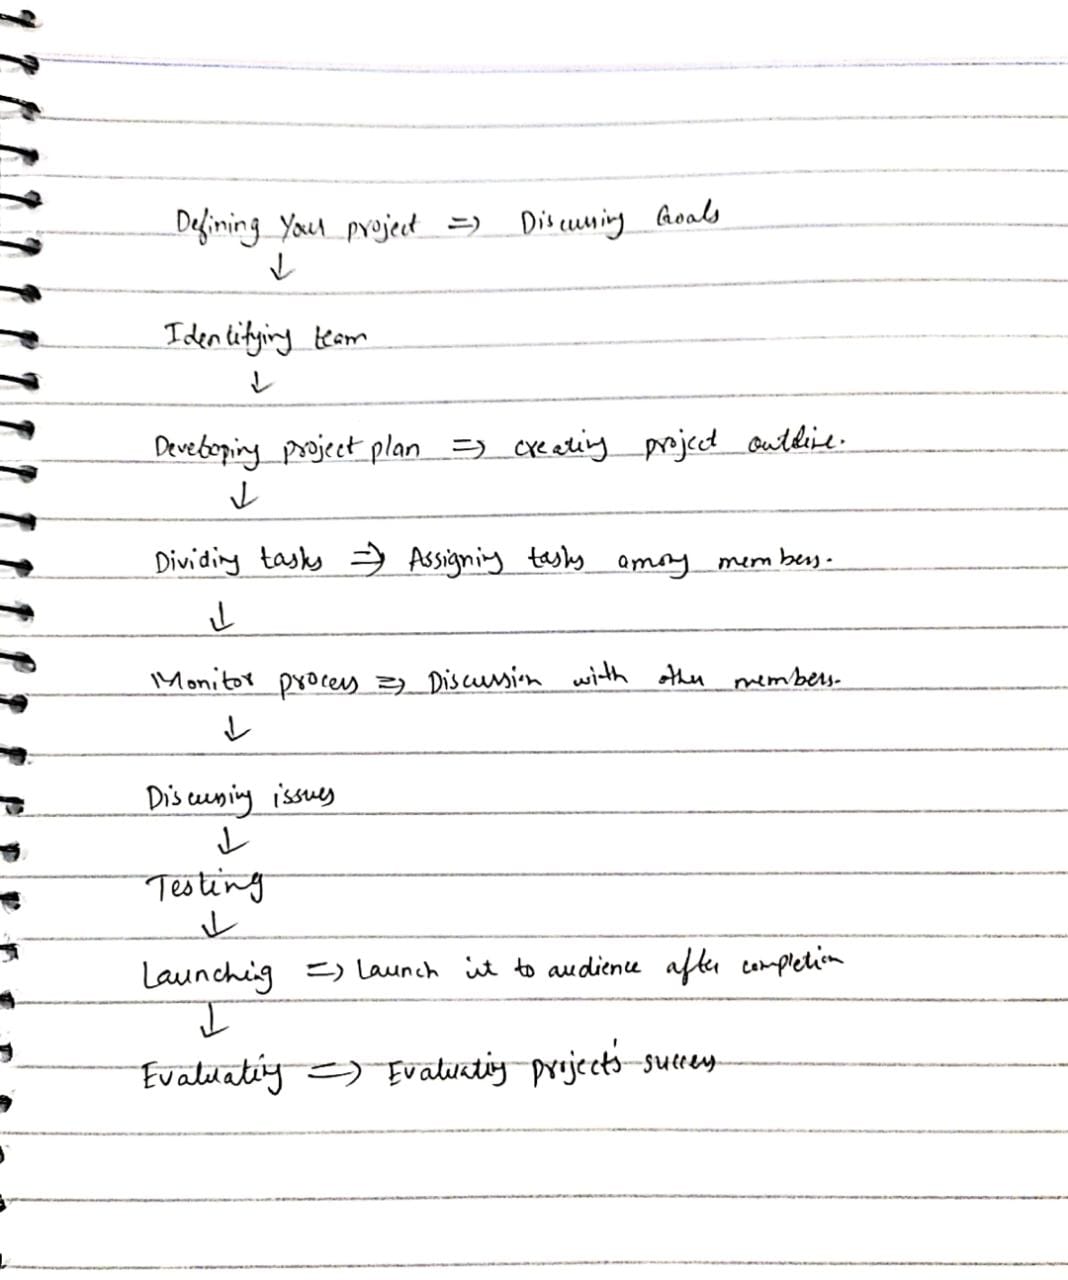 Defining Your project => Discussing Goals
↓
Identifying team
↓
Developing project plan => creating project outline.
↓
Dividing tasks => Assigning tasks among members.
↓
Monitor process => Discussion with other members.
↓
Discussing issues
↓
Testing
↓
Launching => Launch it to audience after completion
↓
Evaluating => Evaluating project's success